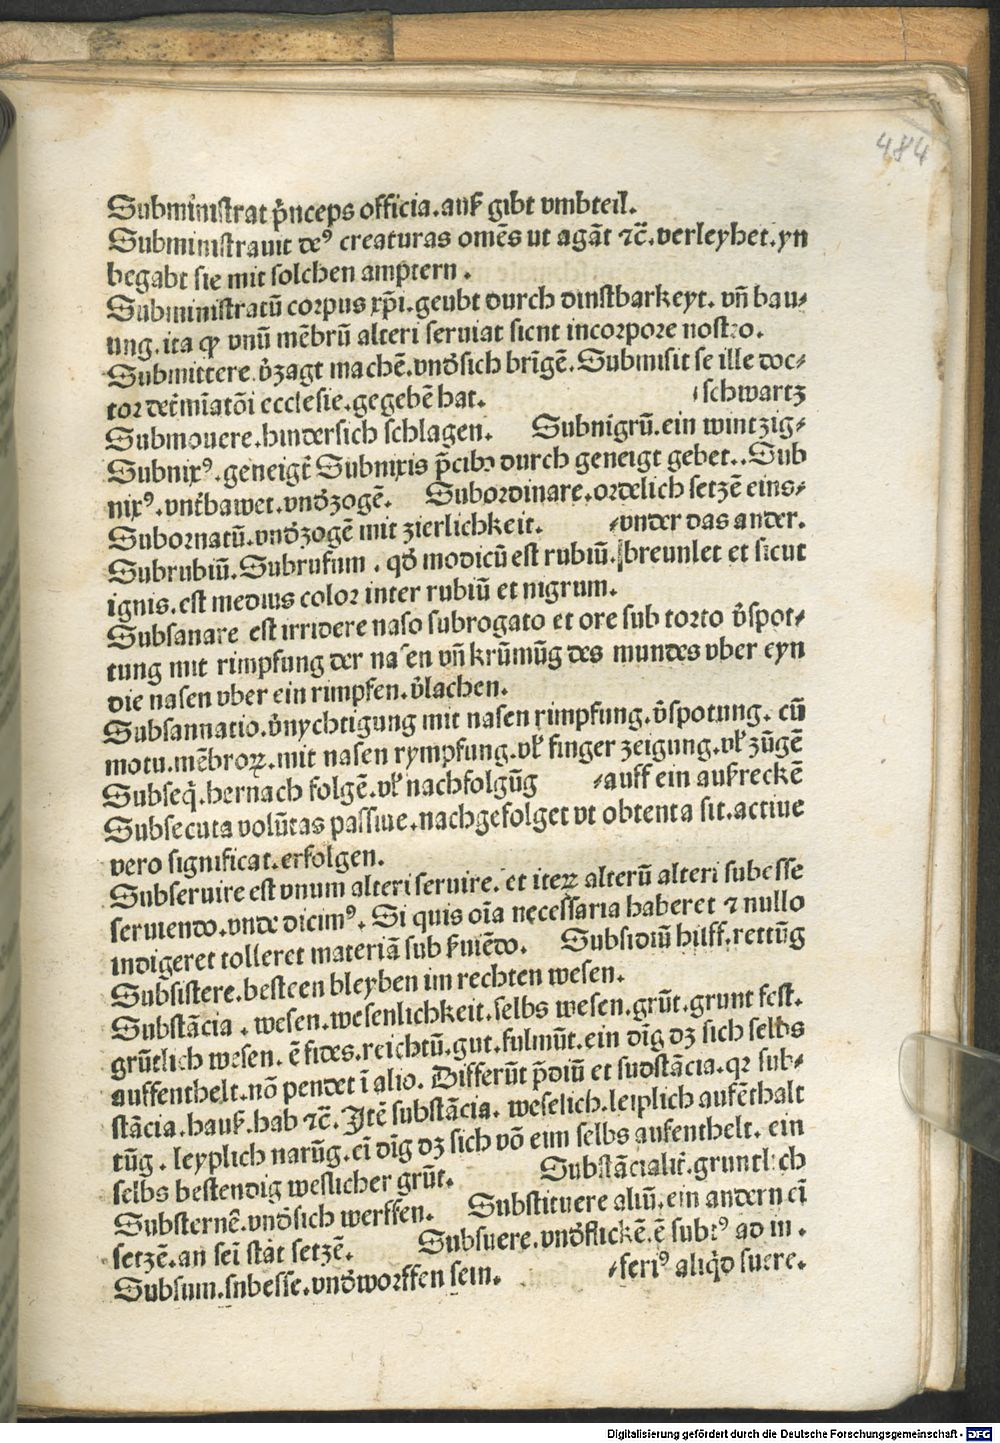 484
Submīnistrat p̄nceps officia.auß gibt vmbteil.
Subministrauit de⁹ creaturas om̄es ut agāt ⁊c̄.verleyhet.yn
begabt sie mit solchen amptern.
Subministratū corpus xp̄i.geubt durch dinstbarkeyt. vn̄ hau⸗
ung.ita ꝙ vnū mēbrū alteri seruiat sicnt incorpore nostro.
Submittere.v̄zagt machē.vnd̄sich brīgē.Submisit se ille doc⸗
tor det̄mīatōi ecclesie.gegebē hat. schwartz
Submouere.hindersich schlagen. Subnigrū.ein wintzig⸗
Subnix⁹.geneigt Subnixis p̄cibꝫ durch geneigt gebet..Sub
nix⁹.vnt̄bawet.vnd̄zogē. Subordinare.ordelich setzē eins⸗
Subornatū.vnd̄zogē mit zierlichkeit. ⸗vnder das ander.
Subrubiū.Subrufum.qd̄ modicū est rubiū.breunlet et sicut
ignis.est medius color inter rubiū et nigrum.
Subsanare est irridere naso subrogato et ore sub torto v̄spot⸗
tung mit rimpfung der nasen vn̄ krūmūg des mundes vber eyn
die nasen vber ein rimpfen.v̄lachen.
Subsannatio.v̄nychtigung mit nasen rimpfung.v̄spotung. cū
motu.mēbroꝝ.mit nasen rympfung.vß finger zeigung.vß zūgē
Subseq̄.hernach folgē.vß nachfolgūg ⸗auff ein außreckē
Subsecuta volūtas passiue.nachgefolget vt obtenta sit.actiue
vero significat.erfolgen.
Subseruire est vnum alteri seruire.et iteꝝ alterū alteri subesse
seruiendo.vnde dicim⁹.Si quis oīa necessaria haberet ⁊ nullo
indigeret tolleret materiā sub s̄uiēdo. Subsidiū hilff.rettūg
Subsistere.besteen bleyben im rechten wesen.
Substācia.wesen.wesenlichkeit.selbs wesen.grūt.grunt fest.
grūtlich wesen.ē fides.reichtū.gut.fulmūt.ein dīg dꝫ sich selbs
auffenthelt.nō pendet ī alio. Differūt p̄diū et sudstācia.qꝛ sub⸗
stācia.hauß.hab ⁊c̄.Itē substācia. weselich.leiplich aufēthalt
tūg.leyplich narūg.eī dīg dꝫ sich vō eim selbs aufenthelt. ein
selbs bestendig weslicher grūt. Substācialit̄.gruntlich
Substernē.vnd̄sich werffen. Substituere aliū.ein andern eī
setzē.an seī stāt setzē. Subsuere.vnd̄flickē.ē subt⁹ ad in.
Subsum.snbesse.vnd̄worffen sein. ⸗feri⁹ aliqd̄ suere.
Digitalisierung gefördert durch die Deutsche Forschungsgemeinschaft - DFG